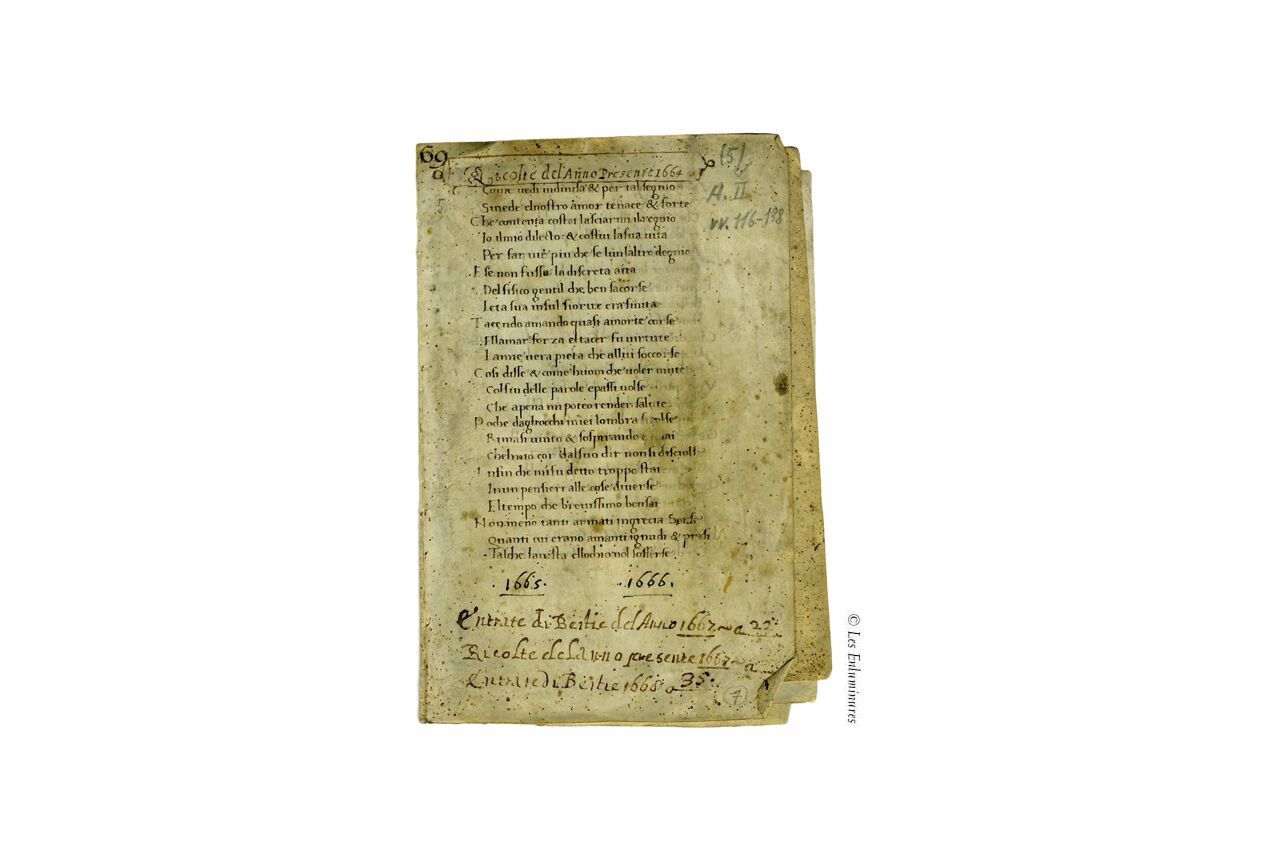 69
(5)
Ricolte del Anno Presente 1664
A. II
vv. 116-138
5
Come vedi indivisa & per tal segno
Sivede elnostro amor tenace & forte
Che contenta costei lasciarmi ilregno
Io ilmio dilecto: & costui lasua vita
Per far viē piu che se lun laltro degno
E se non fusse la discreta aita
Del fisico gentil che ben sacorse
Leta sua insul fiorire era finita
Tacendo amando quasi amorte corse
Ellamar forza eltacer fu virtute
La mie vera pieta che allui soccorse
Cosi disse & come huom che voler mute
Colfin delle parole epassi volse
Che apena mi poteo render salute
Poche dagliocchi miei lombra
Rimasi vinto & sospirando
Chelmio cor dalsuo dir non si disciolse
Infin che mi fu detto troppo stai
Inun pensier alle cose diverse
Eltempo che brevissimo bensai
Non meno tanti armati ingrecia Serse
Quanti ivi erano amanti ignudi & presi
Talche lavista ellochio nol sofferse
1665. 1666.
Entrate di Bestie del Anno 1667 a 22
Ricolte del Anno presente 1667 a
Entrate di Bestie 1668 a 35.
7
© Les Enluminures